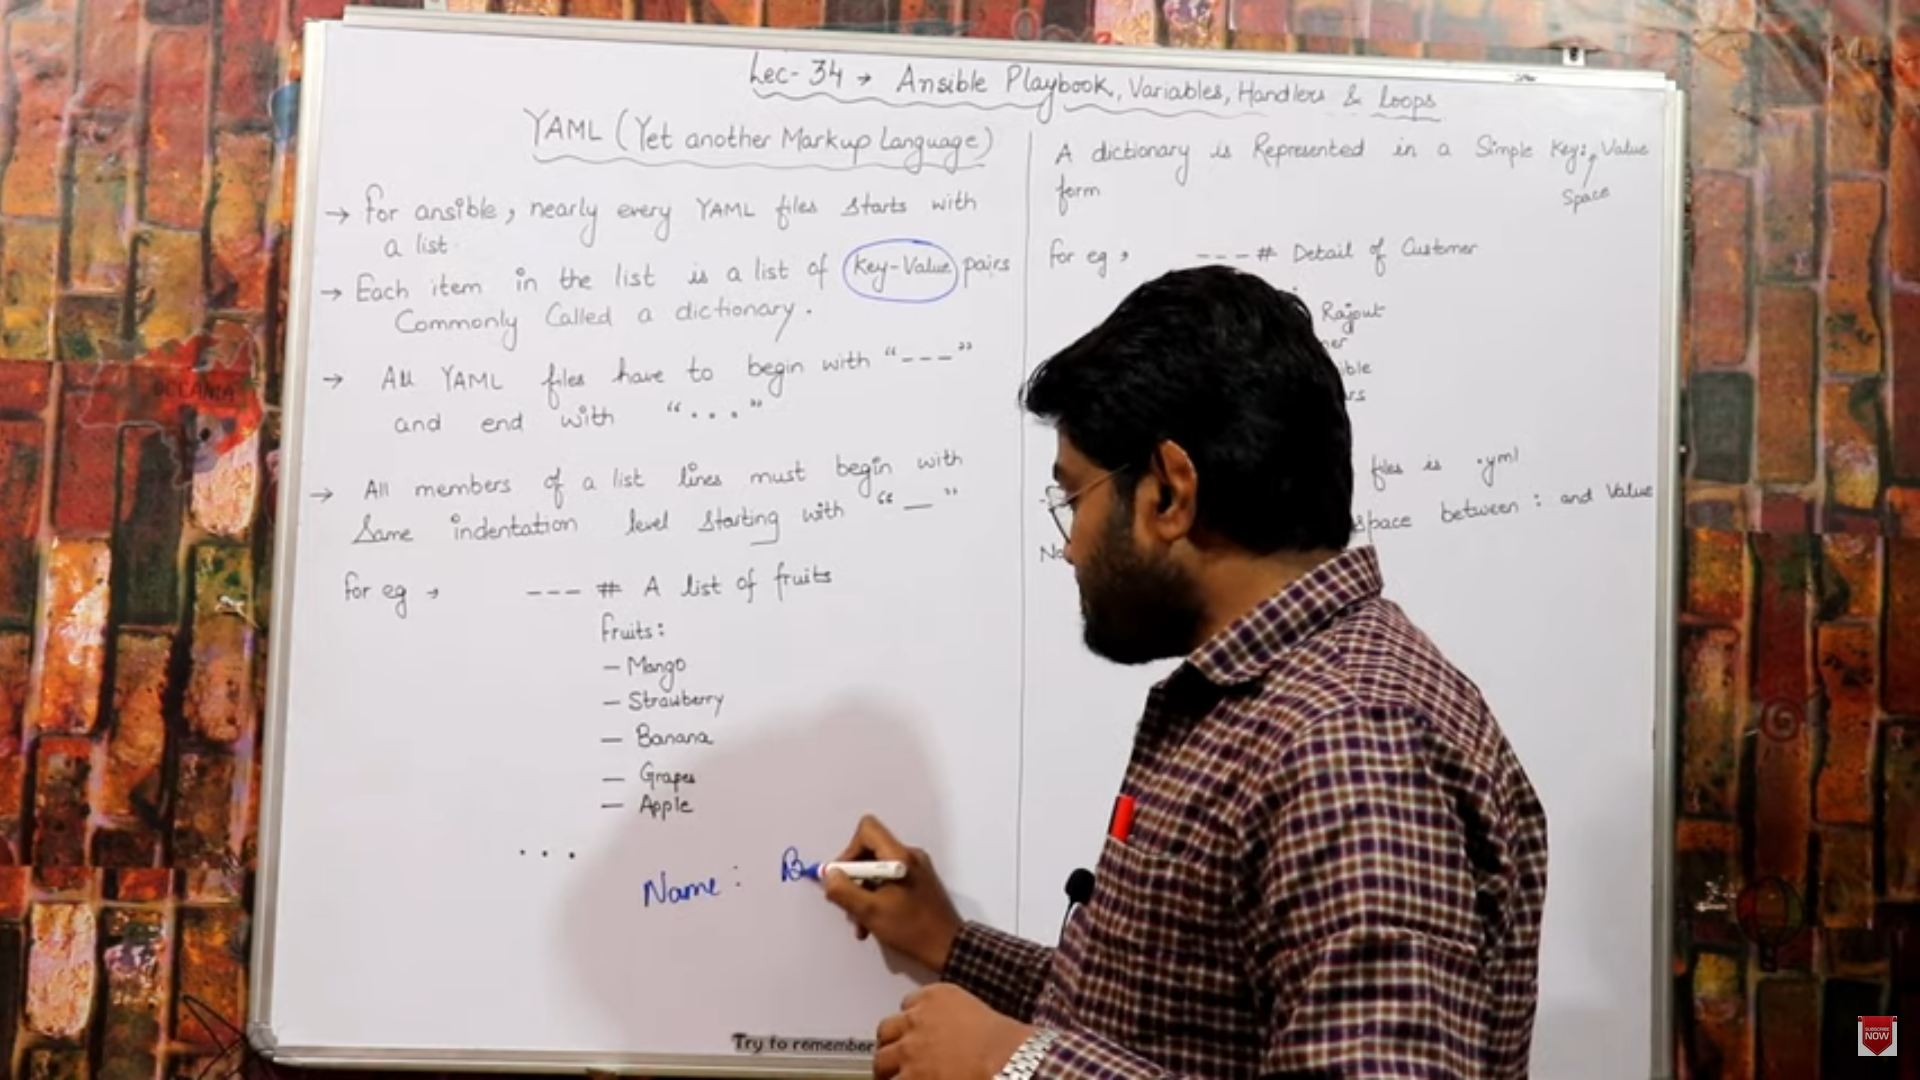 Lec-34 → Ansible Playbook, Variables, Handlers & Loops
YAML (Yet another Markup Language)
→ For ansible, nearly every YAML files starts with
a list
→ Each item in the list is a list of Key-Value pairs
Commonly Called a dictionary.
→ All YAML files have to begin with "---"
and end with "..."
→ All members of a list lines must begin with
Same indentation level starting with "—"
For eg → --- # A list of fruits
Fruits:
— Mango
— Strawberry
— Banana
— Grapes
— Apple
...
Name:
A dictionary is Represented in a Simple Key: Value
form
Space
For eg, --- # Detail of Customer
Rajput
files is .yml
space between : and Value
Try to remember
OCEANIA
SUBSCRIBE
NOW